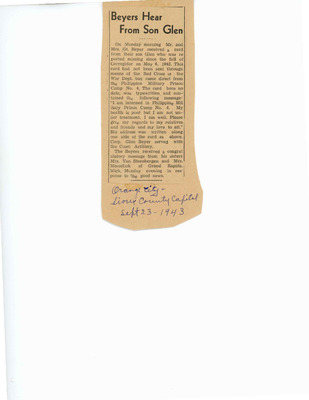 Beyers Hear
From Son Glen
On Monday morning Mr. and
Mrs. Gt. Beyer received a card
from their son Glen who was re
ported missing since the fall of
Corregidor on May 6, 1942. This
card had not been sent through
means of the Red Cross or the
War Dept. but came direct from
the Philippine Military Prison
Camp No. 4. The card bore no
date, was typewritten and con-
tained the following message:
"I am interned in Philippine Mili
tary Prison Camp No. 4. My
health is good but I am not un-
der treatment. I am well. Please
give my regards to my relatives
and friends and my love to all."
His address was written along
one side of the card as above.
Corp. Glen Beyer serving with
the Coast Artillery.
The Beyers received a congrat
ulatory message from his sisters
Mrs. Van and Mrs.
of Grand Rapids,
Mich. Monday evening in res
ponse to the good news.
Orange City -
Sioux County Capital
Sept 23 - 1943